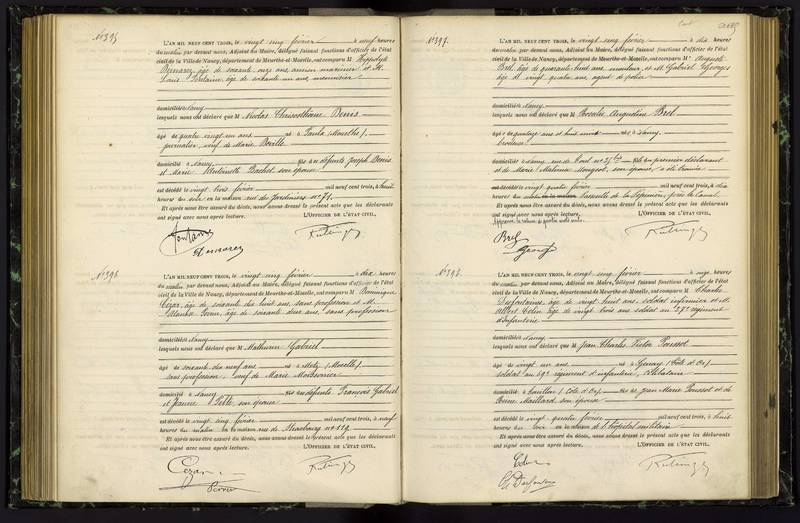 N° 395
L'AN MIL NEUF CENT TROIS, le vingt cinq février à neuf heures
du matin par devant nous, Adjoint au Maire, délégué faisant fonctions d'officier de l'état
civil de la Ville de Nancy, département de Meurthe-et-Moselle, ont comparu M Hippolyte
Demarez, âgé de soixante onze ans, ancien marinier et M.
Louis Fontaine, âgé de soixante un ans, menuisier
domiciliés à Nancy
lesquels nous ont déclaré que M Nicolas Chrisosthôme Denis
âgé de quatre vingt un ans né à (Meurthe),
journalier, veuf de Marie
domicilié à Nancy fils des défunts Joseph Denis
et Marie Antoinette Bachel son épouse
est décédé le vingt trois février mil neuf cent trois, à huit
heures du soir en la maison rue des Jardiniers n° 71.
Et après nous être assuré du décès, nous avons dressé le présent acte que les déclarants
ont signé avec nous après lecture. L'OFFICIER DE L'ÉTAT CIVIL,
Fontaine
Demarez
N° 396
L'AN MIL NEUF CENT TROIS, le vingt cinq février à dix heures
du matin, par devant nous, Adjoint au Maire, délégué faisant fonctions d'officier de l'état
civil de la Ville de Nancy, département de Meurthe-et-Moselle, ont comparu M Dominique
Cézar, âgé de soixante dix huit ans, sans profession et M.
âgé de soixante deux ans, sans profession
domiciliés à Nancy
lesquels nous ont déclaré que M Mathurin Gabriel
âgé de soixante dix neuf ans né à Metz (Moselle)
sans profession veuf de Marie
domicilié à Nancy fils des défunts François Gabriel
et Jeanne son épouse
est décédé le vingt cinq février mil neuf cent trois, à neuf
heures du matin en la maison rue de Strasbourg n° 119.
Et après nous être assuré du décès, nous avons dressé le présent acte que les déclarants
ont signé avec nous après lecture. L'OFFICIER DE L'ÉTAT CIVIL,
Cézar
N° 397
L'AN MIL NEUF CENT TROIS, le vingt cinq février à dix heures
du matin par devant nous, Adjoint au Maire, délégué faisant fonctions d'officier de l'état
civil de la Ville de Nancy, département de Meurthe-et-Moselle, ont comparu M Auguste
Brel, âgé de soixante huit ans, et M. Gabriel Georges
âgé de vingt quatre ans agent de police
domiciliés à Nancy
lesquels nous ont déclaré que M Rosalie Augustine Brel
âgée de quatorze ans et huit mois née à Nancy
brodeuse
domiciliée à Nancy rue de Toul n° 25 fille du premier déclarant
et de Marie Mougeot, son épouse, a été trouvée
vingt quatre février mil neuf cent trois, à dix
heures du matin Passerelle de la Pépinière, près du Canal
Et après nous être assuré du décès, nous avons dressé le présent acte que les déclarants
ont signé avec nous après lecture. L'OFFICIER DE L'ÉTAT CIVIL,
Brel
Georges
N° 398
L'AN MIL NEUF CENT TROIS, le vingt cinq février à onze heures
du matin par devant nous, Adjoint au Maire, délégué faisant fonctions d'officier de l'état
civil de la Ville de Nancy, département de Meurthe-et-Moselle, ont comparu M Charles
Desfontaines, âgé de vingt huit ans, soldat infirmier et M.
Albert Colin âgé de vingt trois ans soldat au régiment
d'Infanterie
domiciliés à Nancy
lesquels nous ont déclaré que M Jean Charles Victor Poussot
âgé de vingt un ans né à (Côte d'Or)
soldat au 69e régiment d'infanterie, célibataire
domicilié à (Côte d'Or) fils de Jean Marie Poussot et de
Maillard son épouse
est décédé le vingt quatre février mil neuf cent trois, à huit
heures du soir en la maison de l'hôpital militaire
Et après nous être assuré du décès, nous avons dressé le présent acte que les déclarants
ont signé avec nous après lecture. L'OFFICIER DE L'ÉTAT CIVIL,
Colin
Desfontaines